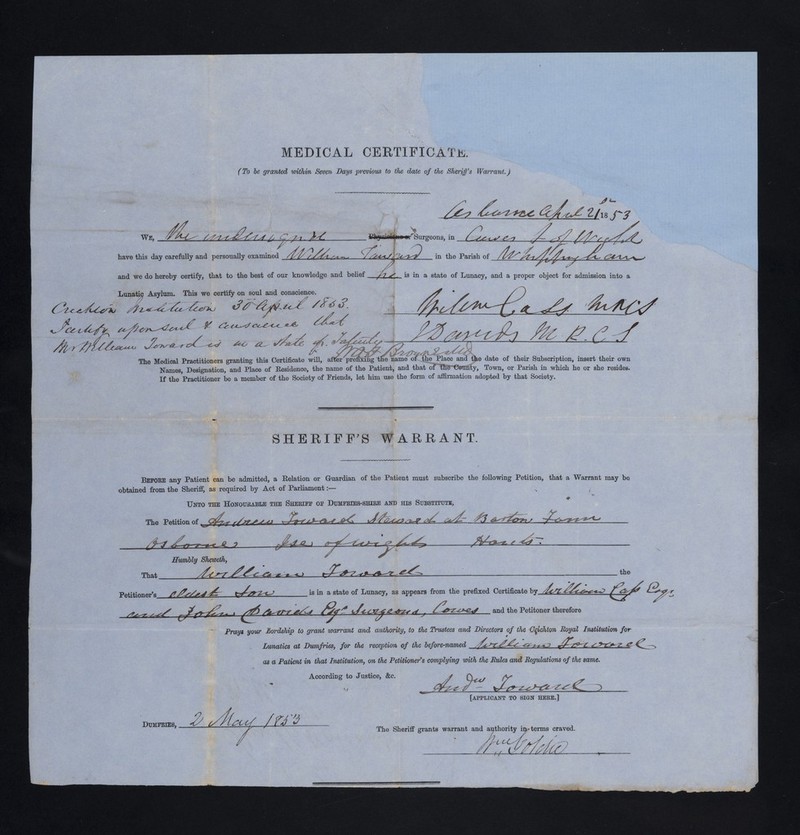 MEDICAL CERTIFICATE.
(To be granted within Seven Days previous to the date of the Sheriff's Warrant.)
Osborne April 21st 1853
WE, The undersigned Surgeons, in Cowes I of Wight
have this day carefully and personally examined William Toward in the Parish of Whippingham
and we do hereby certify, that to the best of our knowledge and belief he is in a state of Lunacy, and a proper object for admission into a
Lunatic Asylum. This we certify on soul and conscience.
Crichton Institution 30 April 1853.
William Cass MRCS
I certify upon soul & conscience that
J Davids M R.C S
Mr William Toward is in a state of Fatuity
The Medical Practitioners granting this Certificate will, after prefixing the name of the Place and the date of their Subscription, insert their own
Names, Designation, and Place of Residence, the name of the Patient, and that of the County, Town, or Parish in which he or she resides.
If the Practitioner be a member of the Society of Friends, let him use the form of affirmation adopted by that Society.
SHERIFF'S WARRANT.
BEFORE any Patient can be admitted, a Relation or Guardian of the Patient must subscribe the following Petition, that a Warrant may be
obtained from the Sheriff, as required by Act of Parliament:—
UNTO THE HONOURABLE THE SHERIFF OF DUMFRIES-SHIRE AND HIS SUBSTITUTE,
The Petition of Andrew Toward Steward at Barton Farm
Osborne Isle of wight Hants.
Humbly Sheweth,
That William Toward the
Petitioner's oldest Son is in a state of Lunacy, as appears from the prefixed Certificate by William Cass Esqr
and John Davids Esqr Surgeons, Cowes and the Petitoner therefore
Prays your Lordship to grant warrant and authority, to the Trustees and Directors of the Crichton Royal Institution for
Lunatics at Dumfries, for the reception of the before-named William Toward
as a Patient in that Institution, on the Petitioner's complying with the Rules and Regulations of the same.
According to Justice, &c.
Andw Toward
[APPLICANT TO SIGN HERE.]
DUMFRIES, 2 May 1853
The Sheriff grants warrant and authority in terms craved.
Wm Goldie